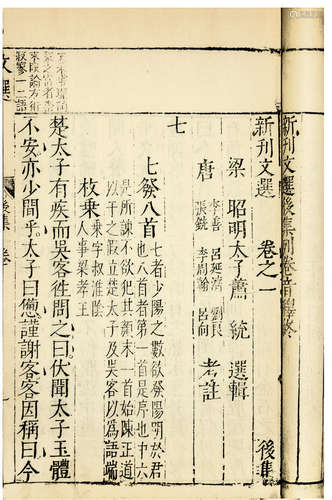 新刊文選後集
卷音釋終
新刊文選 卷之一 後集
梁 昭明太子蕭 統 選輯
唐 李善 呂延濟 劉良
張銑 李周翰 呂向 考註
七
七發八首 七者少陽之數欲發陽明於君
也八首者第一首是序也中六
是所諫不欲犯其顏末一首始陳正道
以干之假立楚太子及吳客以為語端
枚乘 乘字叔淮陰
人事梁孝王
楚太子有疾而吳客往問之曰伏聞太子玉體
不安亦少間乎太子曰憊謹謝客客因稱曰今
文選 後集 卷